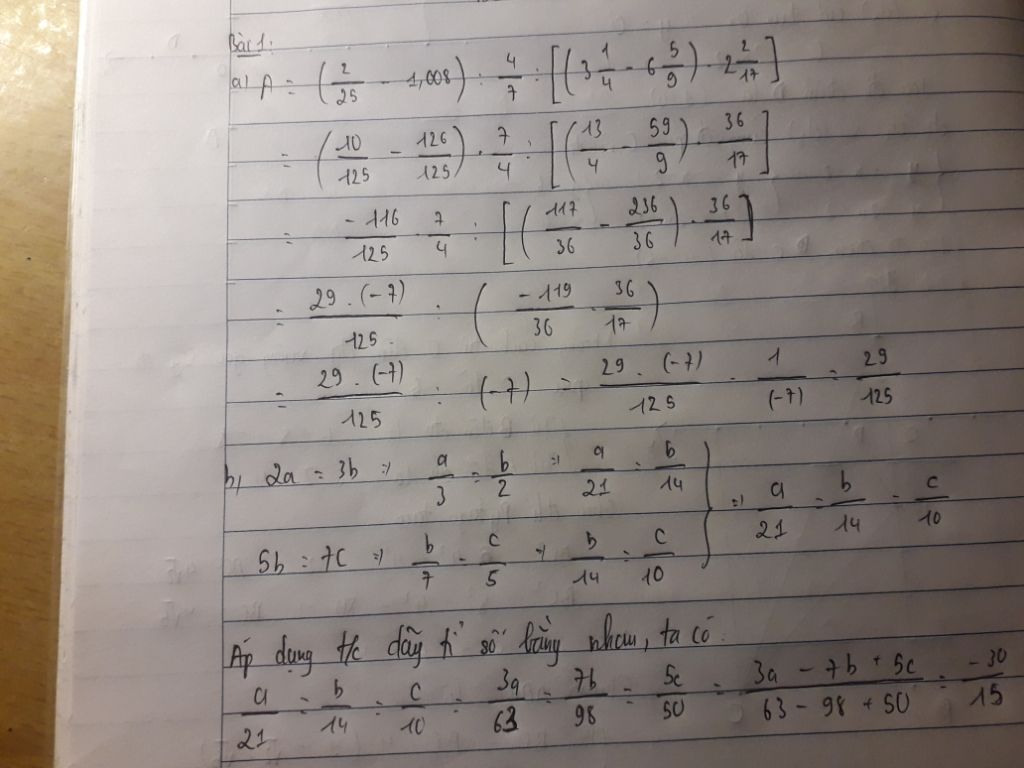 Bài 1:
a) A = (2/25 - 1,008) : 4/7 : [(3 1/4 - 6 5/9) . 2 2/17]
= (10/125 - 126/125) . 7/4 : [(13/4 - 59/9) . 36/17]
= -116/125 . 7/4 : [(117/36 - 236/36) . 36/17]
= 29 . (-7)/125 : (-119/36 . 36/17)
= 29 . (-7)/125 : (-7) = 29 . (-7)/125 . 1/(-7) = 29/125
b, 2a = 3b => a/3 = b/2 => a/21 = b/14
5b = 7c => b/7 = c/5 => b/14 = c/10 } => a/21 = b/14 = c/10
Áp dụng t/c dãy tỉ số bằng nhau, ta có
a/21 = b/14 = c/10 = 3a/63 = 7b/98 = 5c/50 = 3a - 7b + 5c/63 - 98 + 50 = -30/15